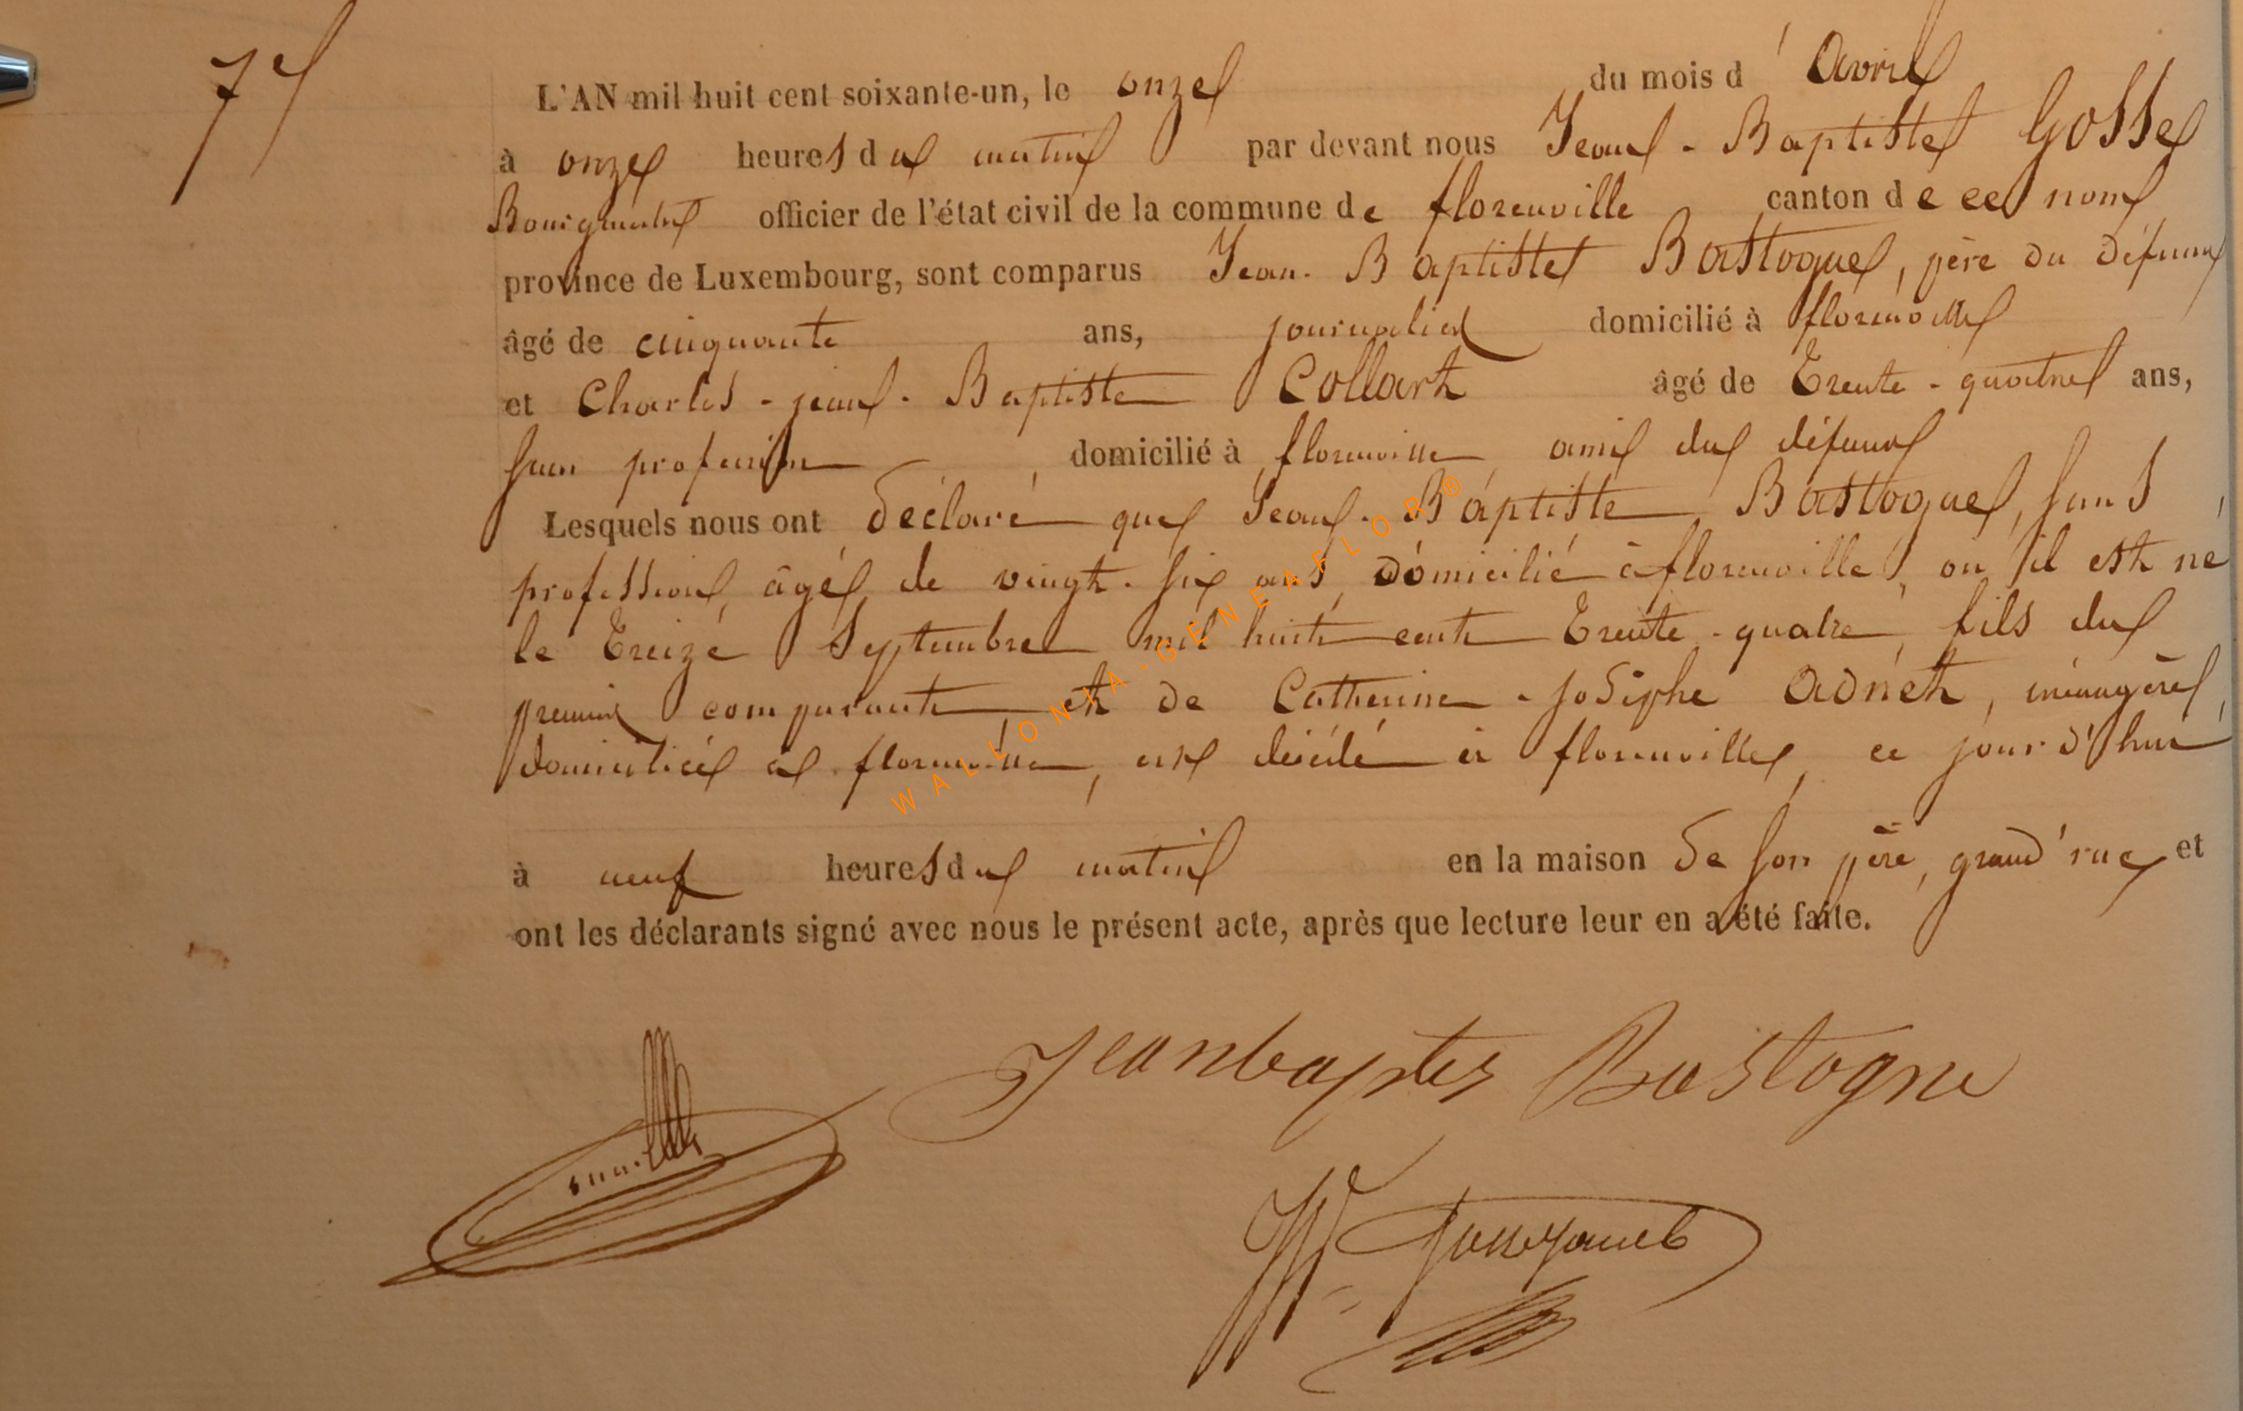 7
L'AN mil huit cent soixante-un, le onze du mois d'Avril
à onze heures du matin par devant nous Jean-Baptiste Gosse
Bourgmestre officier de l'état civil de la commune de florenville canton de ce nom
province de Luxembourg, sont comparus Jean-Baptiste Bastogne, père du défunt
âgé de cinquante ans, journalier domicilié à florenville
et Charles-jean-Baptiste Collart âgé de Trente-quatre ans,
sans profession, domicilié à florenville, ami du défunt
Lesquels nous ont déclaré que Jean-Baptiste Bastogne, sans
profession, âgé de vingt-six ans, domicilié à florenville, ou il est né
le Treize Septembre mil huit cent Trente-quatre, fils du
premier comparant et de Catherine-Josephe Adnet, ménagère,
domiciliée à florenville, est décédé à florenville, ce jour d'hui
à neuf heures du matin en la maison de son père, grand'rue et
ont les déclarants signé avec nous le présent acte, après que lecture leur en a été faite.
Jeanbaptes Bastogne
WALLONIA-GENEAFLOR®